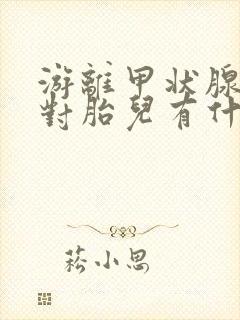 游離甲状腺
對胎兒有什
菘小思